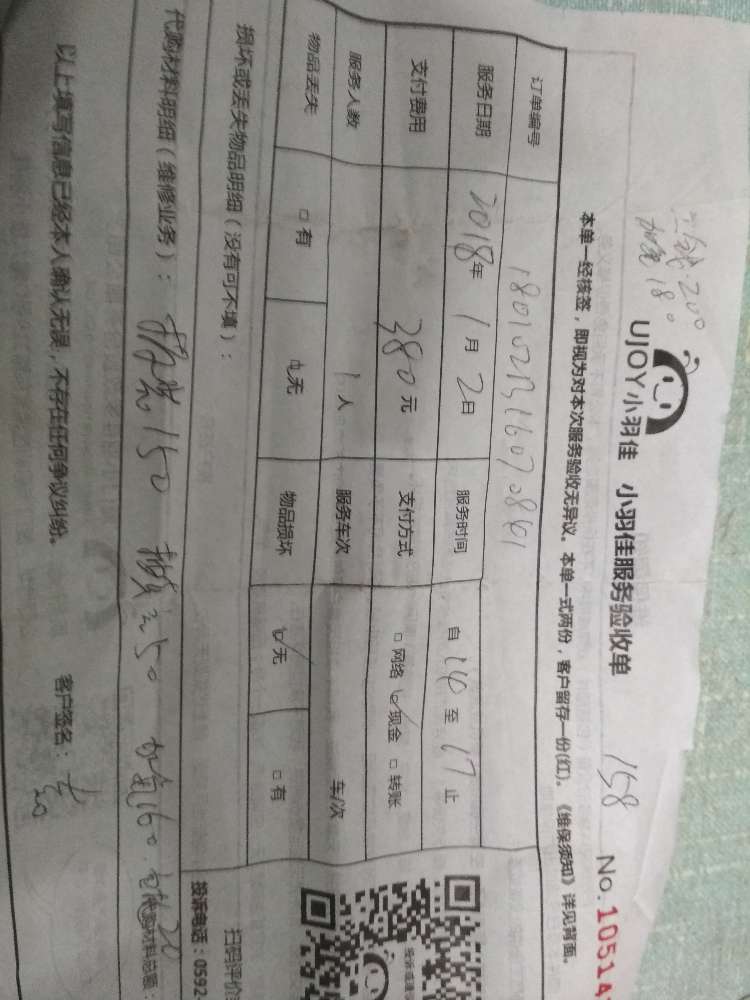 200
加氟 180
UJOY小羽佳 小羽佳服务验收单 158 No.10514
本单一经核签，即视为对本次服务验收无异议。本单一式两份，客户留存一份(红)。《维保须知》详见背面。
订单编号
服务日期 2018年 1月 2日 服务时间 自 14 至 17 止
支付费用 380元 支付方式 □ 网络 现金 □ 转账
服务人数 1人 服务车次 车/次
物品丢失 □ 有 无 物品损坏 无 □ 有
损坏或丢失物品明细（没有可不填）：
扫码评价
代购材料明细（维修业务）： 150 50 加氟160 20 代购材料总额：
投诉电话：0592
以上填写信息已经本人确认无误，不存在任何争议纠纷。 客户签名：